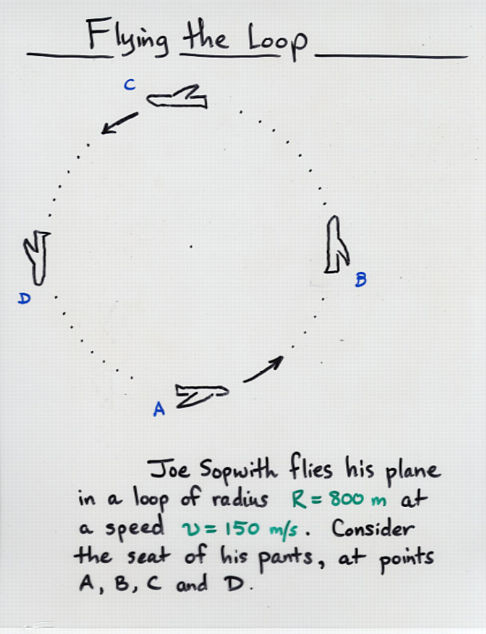 Flying the Loop
C
B
D
A
Joe Sopwith flies his plane
in a loop of radius R = 800 m at
a speed v = 150 m/s. Consider
the seat of his pants, at points
A, B, C and D.